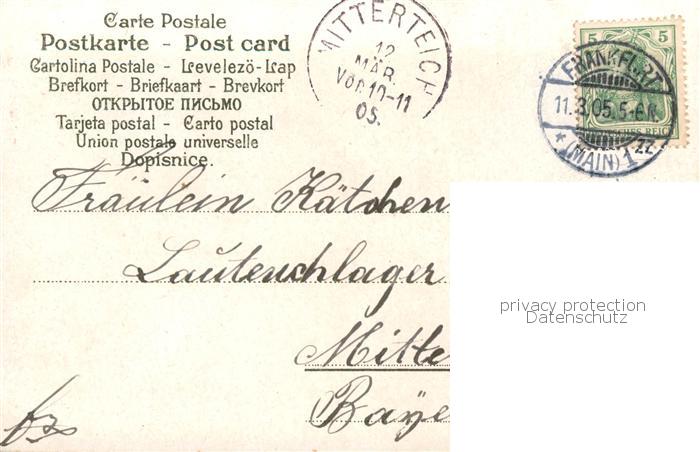 Carte Postale
Postkarte - Post card
Cartolina Postale - Levelező-Lap
Brefkort - Briefkaart - Brevkort
ОТКРЫТОЕ ПИСЬМО
Tarjeta postal - Carto postal
Union postale universelle
Dopisnice.
MITTERTEICH
12
MÄR.
Vor 10-11
05.
5 5
FRANKFURT
11.3.05.5-6N.
(MAIN) 1
*
ZZ
Fräulein Kätchen
Lautenchlager
Mitte
Baye
privacy protection
Datenschutz